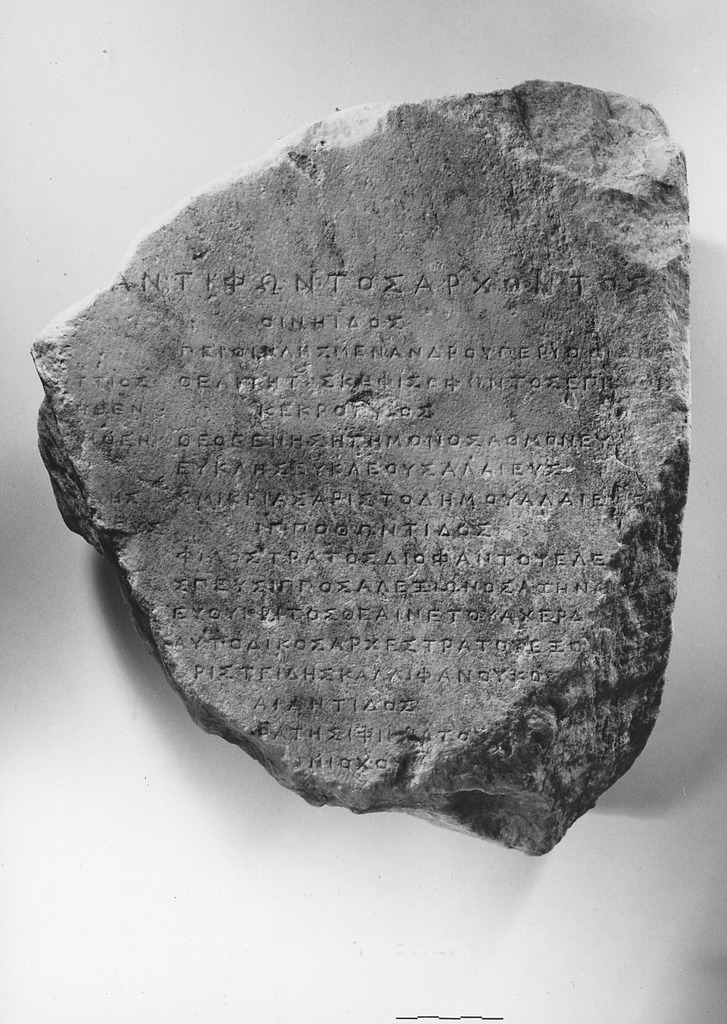 ΑΝΤΙΦΩΝΤΟΣΑΡΧΟΝΤΟΣ
ΟΙΝΗΙΔΟΣ
ΠΕΙΘΙΚΛΗΣΜΕΝΑΝΔΡΟΥΠΕΡΙΘΟΙΔΗ
ΤΤΙΟΣ ΘΕΑΙΤΗΤΟΣΚΗΦΙΣΟΦΩΝΤΟΣΕΠΙΚΗ
ΗΘΕΝ ΚΕΚΡΟΠΙΔΟΣ
ΗΘΕΝ ΘΕΟΓΕΝΗΣΗΓΗΜΟΝΟΣΑΘΜΟΝΕΥ
ΕΥΚΛΗΣΕΥΚΛΕΟΥΣΑΛΑΙΕΥΣ
ΗΣ ΣΜΙΚΡΙΑΣΑΡΙΣΤΟΔΗΜΟΥΑΛΑΙΕ
ΕΥΣ ΙΠΠΟΘΩΝΤΙΔΟΣ
ΦΙΛΟΣΤΡΑΤΟΣΔΙΟΦΑΝΤΟΥΕΛΕ
ΣΠΕΥΣΙΠΠΟΣΑΛΕΞΙΩΝΟΣΑΖΗΝΙ
ΕΥΘΥΚΡΙΤΟΣΘΕΑΙΝΕΤΟΥΑΧΕΡΔ
ΑΥΤΟΔΙΚΟΣΑΡΧΕΣΤΡΑΤΟΥΕΞΟ
ΡΙΣΤΕΙΔΗΣΚΑΛΛΙΦΑΝΟΥΚΟ
ΑΙΑΝΤΙΔΟΣ
ΝΙΟΧΟ